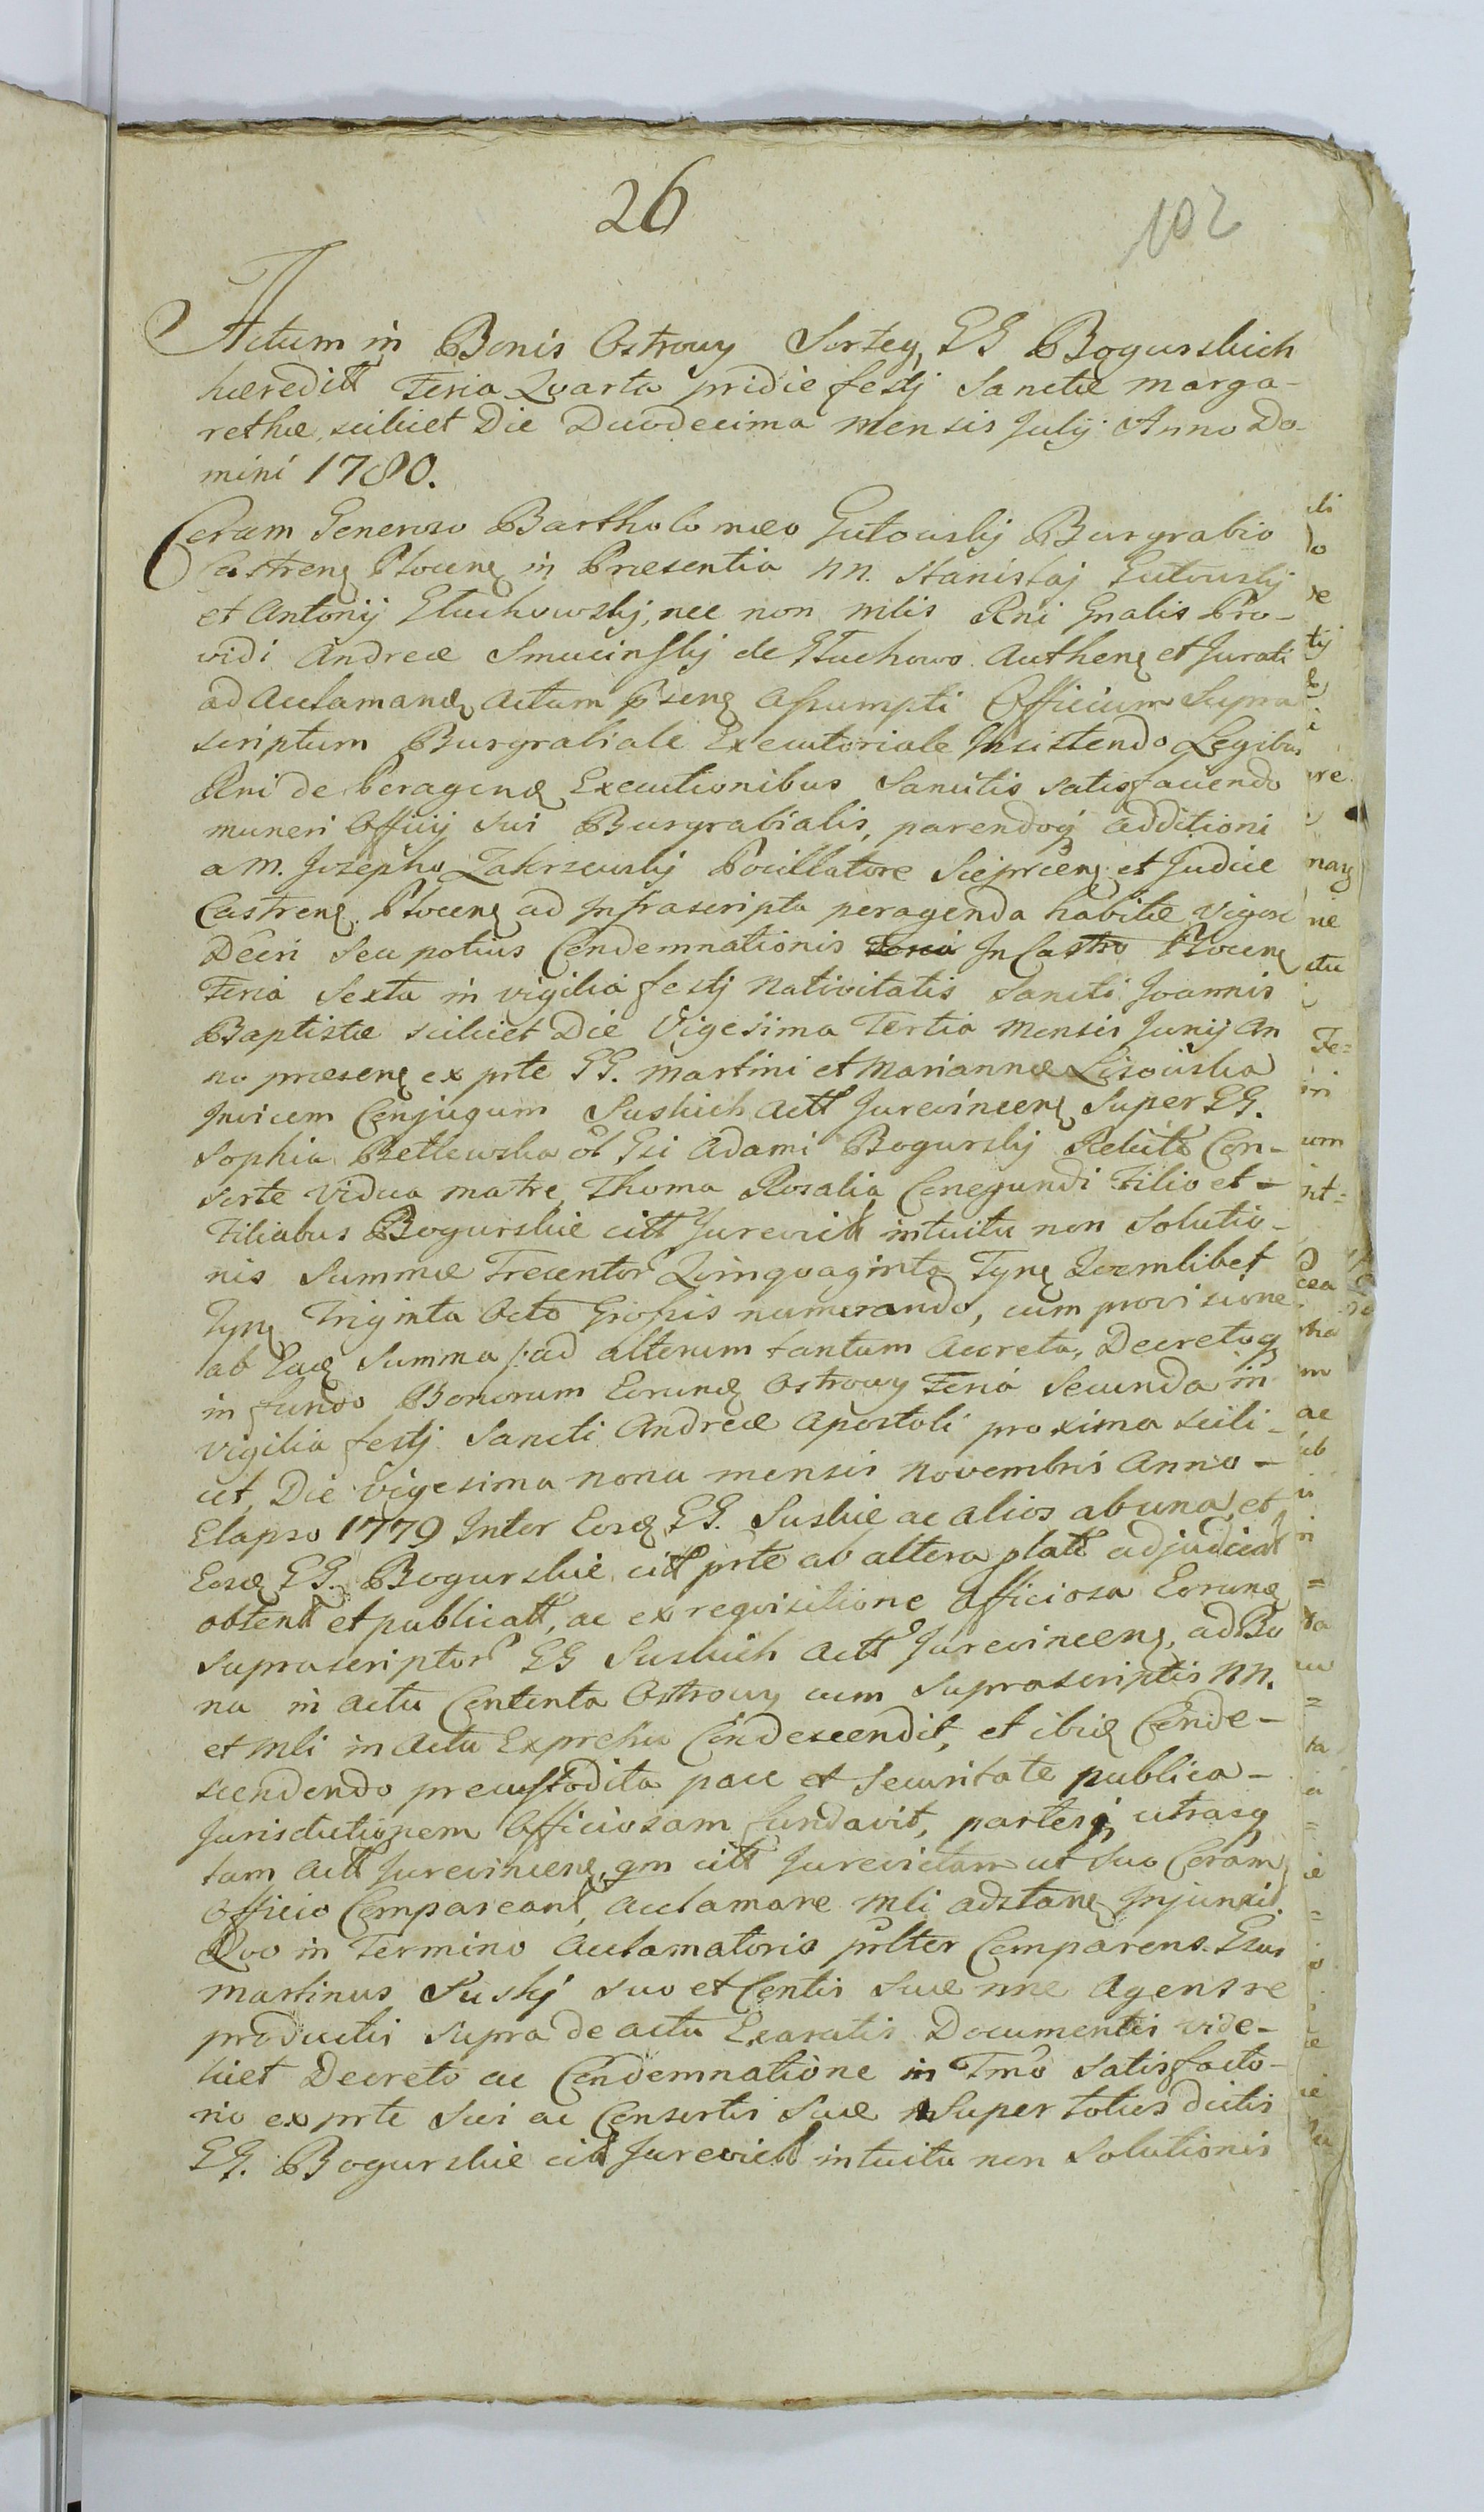 26
102
Actum in Bonis Ostrowy Sorteq GG Bogurskich
hæreditt Feria Quarta pridie festj Sanctæ Marga-
rethæ, scilicet Die Duodecima Mensis Julij Anno Do-
mini 1780.
Coram Generoso Bartholomæo Gutowskij Burgrabio
Castrenȩ Plocenȩ in Præsentia NN. Stanislaj Gutowskij
et Antonij Głuchowskij, nec non Mlis Rni Gnalis Pro-
vidi Andreæ Smucinskij de Głuchowo Authenȩ et Jurati
ad Acclamanȡ Actum Psenȩ Assumpti Officium Supra
scriptum Burgrabiale Executoriale Insistendo Legibus
Rni de Peragenȡ Executionibus Sancitis satisfaciendo
muneri Officij sui Burgrabialis, parendoq additioni
a M. Josepho Zakrzewskij Pocillatore Sieprcenȩ et Judice
Castrenȩ Plocenȩ ad Infrascripta peragenda habitæ vigore
Decri seu potius Condemnationis In Castro Plocenȩ
Feria Sexta in vigilia festj Nativitatis Sancti Joannis
Baptistæ scilicet Die Vigesima Tertia Mensis Junij An
no præsenȩ ex prte GG. Martini et Mariannæ Lisowska
Invicem Conjugum Suskich Actt Jurevincenȩ Super GG.
Sophia Betlewska ol Gsi Adami Bogurskij Relicta Con-
sorte Vidua matre, Thoma Rosalia Conegundi Filio et -
Filiabus Bogurskie citt Jurevictt intuitu non Solutio-
nis Summæ Trecentor Quinquaginta Tynȩ Quemlibet
Tynȩ Triginta Octo Grossis numerando, cum provisione
ab Eaȡ Summa /: ad alterum tantum Accreta, Decretoq
in fundo Bonorum Eorunȡ Ostrowy Feria Secunda in
vigilia festj Sancti Andreæ Apostoli proxima scili-
cet, Die vigesima nona mensis Novembris Anno -
Elapso 1779 Inter Eosȡ GG. Suskie ac alios ab una, et
Eosȡ GG. Bogurskie citt prte ab altera platt adjudicat
obtentt et publicatt, ac ex requisitione Officiosa Eorunȡ
Suprascriptor GG Suskich Actt Jurevincenȩ, ad Bo
na in Actu Contenta Ostrowy cum Suprascriptis NN.
et Mli in Actu Expressis Condescendit, et ibiȡ Conde-
scendendo precustodita pace et Securitate publica -
Jurisdictionem Officiosam fundavit, partesq utrasq
tam Actt Jurevincenȩ, qm citt Jurevictam ut suo Coram
Officio Compareant, Acclamare Mli adstanȩ Injunxit.
Quo in Termino Acclamatorio prlter Comparens. Gsus
Martinus Suskij suo et Contis Suæ nne Agens re
productis Supra de Actu Exaratis Documentis vide-
licet Decreto ac Condemnatione in Tmo Satisfacto-
rio ex prte Sui ac Consortis Suæ Super toties dictis
GG. Bogurskie citt Jurevictt intuitu non Solutionis